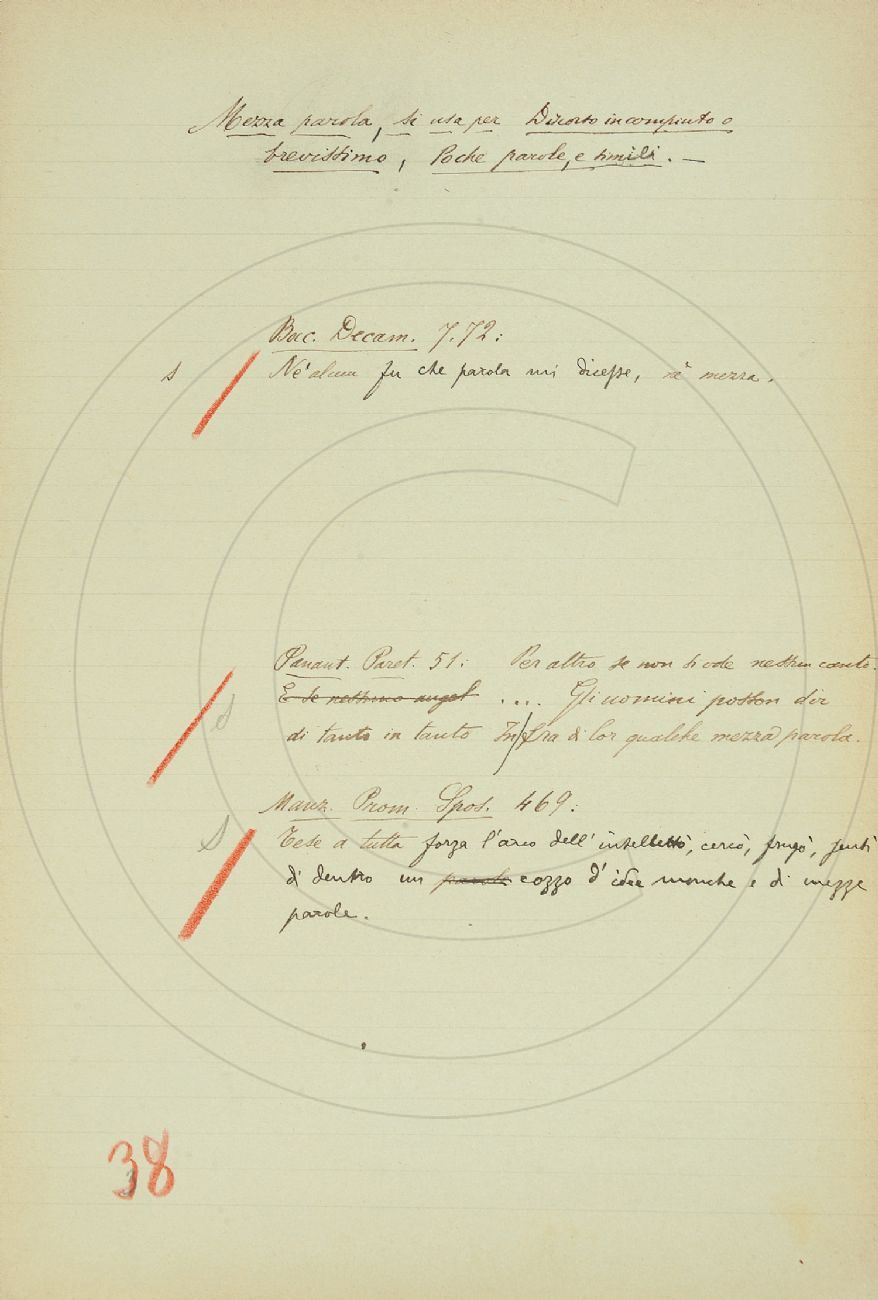 Mezza parola, si usa per Discorso incompiuto o
brevissimo, Poche parole, e simili. —
Boc. Decam. 7.72:
s Né alcun fu che parola mi dicesse, né mezza.
Panant. Paret. 51: Per altro se non si ode nessun canto.
E se nessuno augel .... Gli uomini posson dir
s di tanto in tanto In fra di lor qualche mezza parola.
Manz. Prom. Spos. 469:
s Tese a tutta forza l'arco dell'intelletto, cercò, frugò, sentì
di dentro un parole cozzo d'idee monche e di mezze
parole.
38